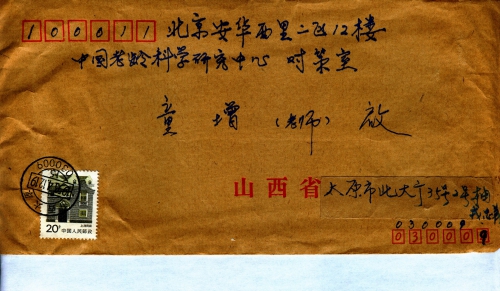 100011 北京安华西里二区12楼
中国老龄科学研究中心 对策室
童 增 (老师) 启
山西省 太原市北大街35号2号楼
030009
030009
030009
20分 中国人民邮政